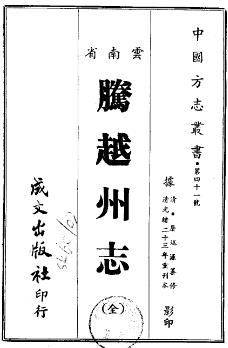 中國方志叢書・第四十一號
據
清・屠述濂纂修
清光緒二十三年重刊本
影印
雲南省
騰越州志
(全)
成文出版社印行